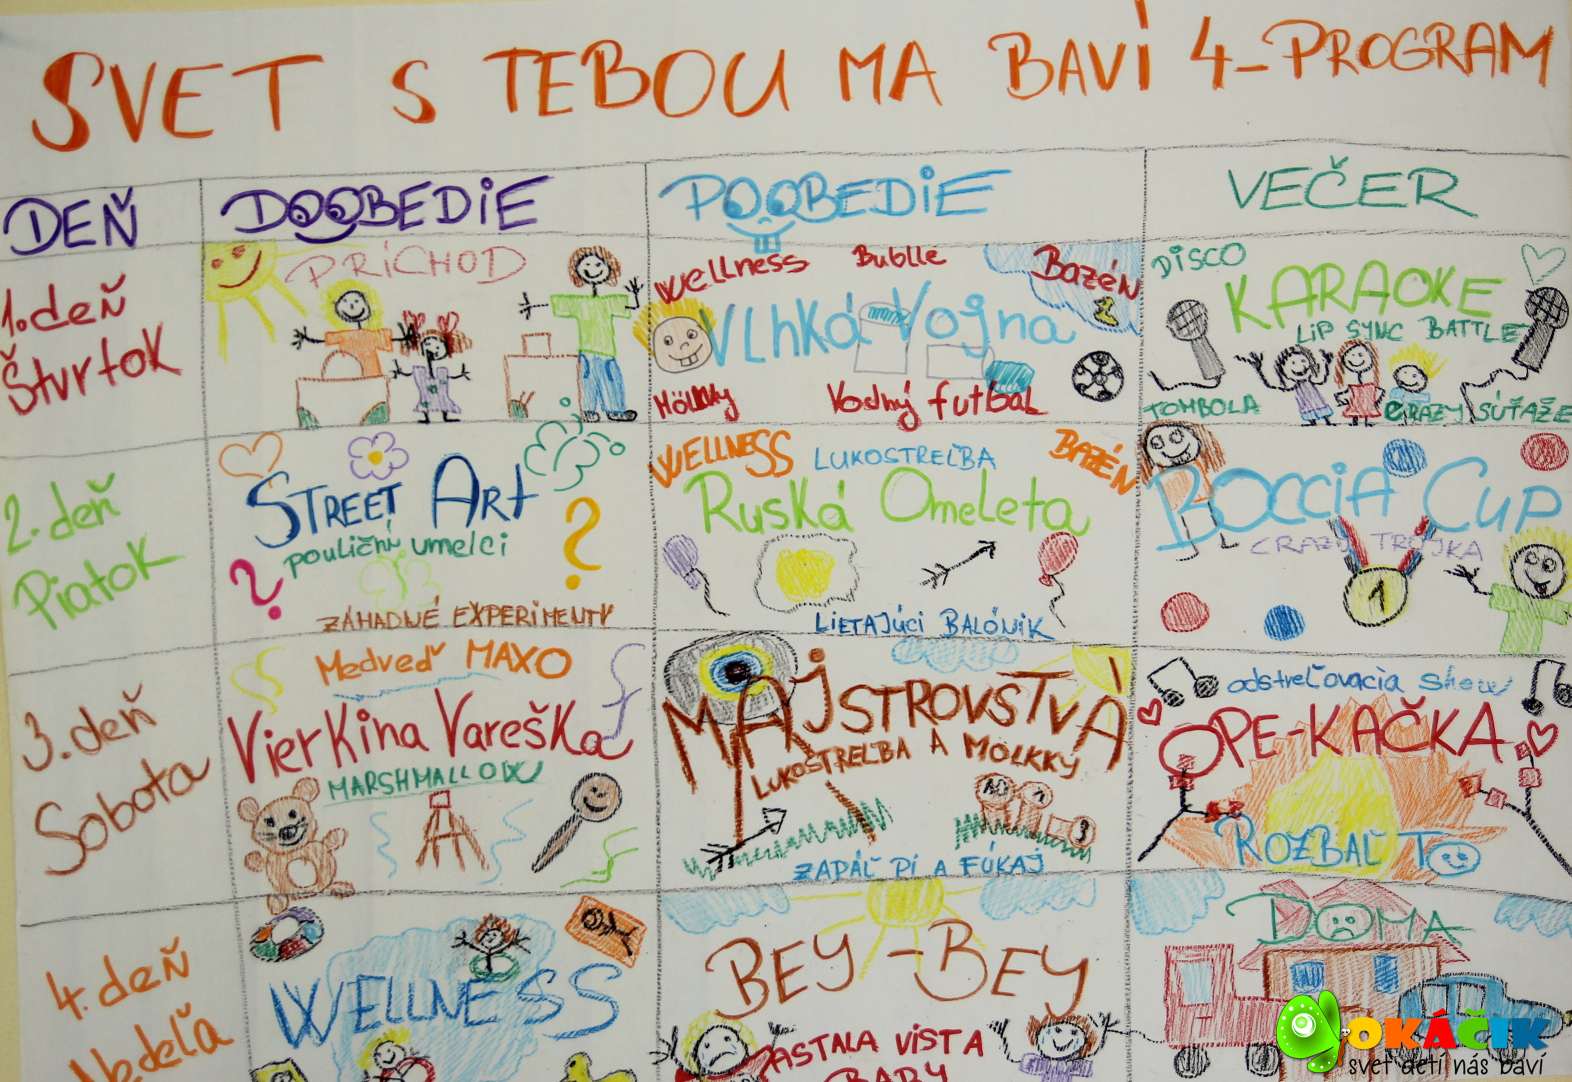 SVET S TEBOU MA BAVÍ 4-PROGRAM
DEŇ DOOBEDIE POOBEDIE VEČER
1. deň
Štvrtok
PRÍCHOD
Wellness Bublle Bazén
Vlhká Vojna
Mölkky Vodný futbal
DISCO
KARAOKE
LIP SYNC BATTLE
TOMBOLA CRAZY SÚŤAŽE
2. deň
Piatok
STREET Art
pouliční umelci
ZÁHADNÉ EXPERIMENTY
WELLNESS LUKOSTREĽBA BAZÉN
Ruská Omeleta
LIETAJÚCI BALÓNIK
BOCCIA CUP
CRAZY TROJKA
1
3. deň
Sobota
Medveď MAXO
Vierkina Vareška
MARSHMALLOW
MAJSTROVSTVÁ
LUKOSTREĽBA A MOLKKY
10 1 3
ZAPÁĽ PI A FÚKAJ
odstreľovacia show
OPE-KAČKA
ROZBAĽ TO
4. deň
Nedeľa
WELLNESS
BEY-BEY
ASTALA VISTA
BABY
DOMA
OKÁČIK
svet detí nás baví